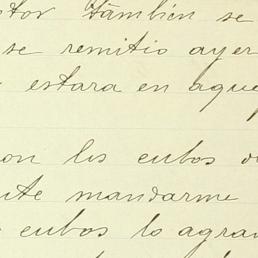 tor también se
se remitio ayer
estara en aque
on los cubos d
te mandarme
cubos lo agran